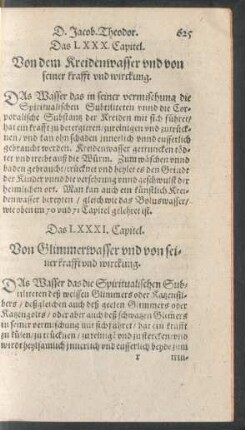 D. Jacob. Theodor. 625
Das LXXX. Capitel.
Von dem Kreidenwasser vnd von
seiner krafft vnd wirckung.
DAs Wasser das in seiner vermischung die
Spiritualischen Subtiliteten vnnd die Cor-
poralische Substantz der Kreiden mit sich führet/
hat ein krafft zu
vnd kan ohn schaden innerlich vnnd eusserlich
gebraucht werden. Kreidenwasser getruncken töd-
tet vnd treibt auß die Würm. Zum wäschen vnnd
baden gebraucht/ trücknet vnd heylet es den Grindt
der Kinder vnnd die versehrung vnnd geschwulst der
heimlichen ort. Man kan auch ein künstlich Krei-
denwasser bereyten/ gleich wie das Boluswasser/
wie oben im 70 vnd 71 Capitel gelehret ist.
Das LXXXI. Capitel.
Von Glimmerwasser vnd von sei-
ner krafft vnd wirckung.
DAs Wasser das die Spiritualischen Sub-
tiliteten deß weissen Glimmers oder Katzensil-
bers/ deßgleichen auch deß geelen Glimmers oder
Katzengolts/ oder aber auch deß schwartzen Glimers
in seiner vermischung mit sich führet/ hat ein krafft
zu külen/ zu trücknen/ zu reinigen vnd zu stercken/ vnd
wirdt heylsamlich innerlich vnd eusserlich beyde zum
r